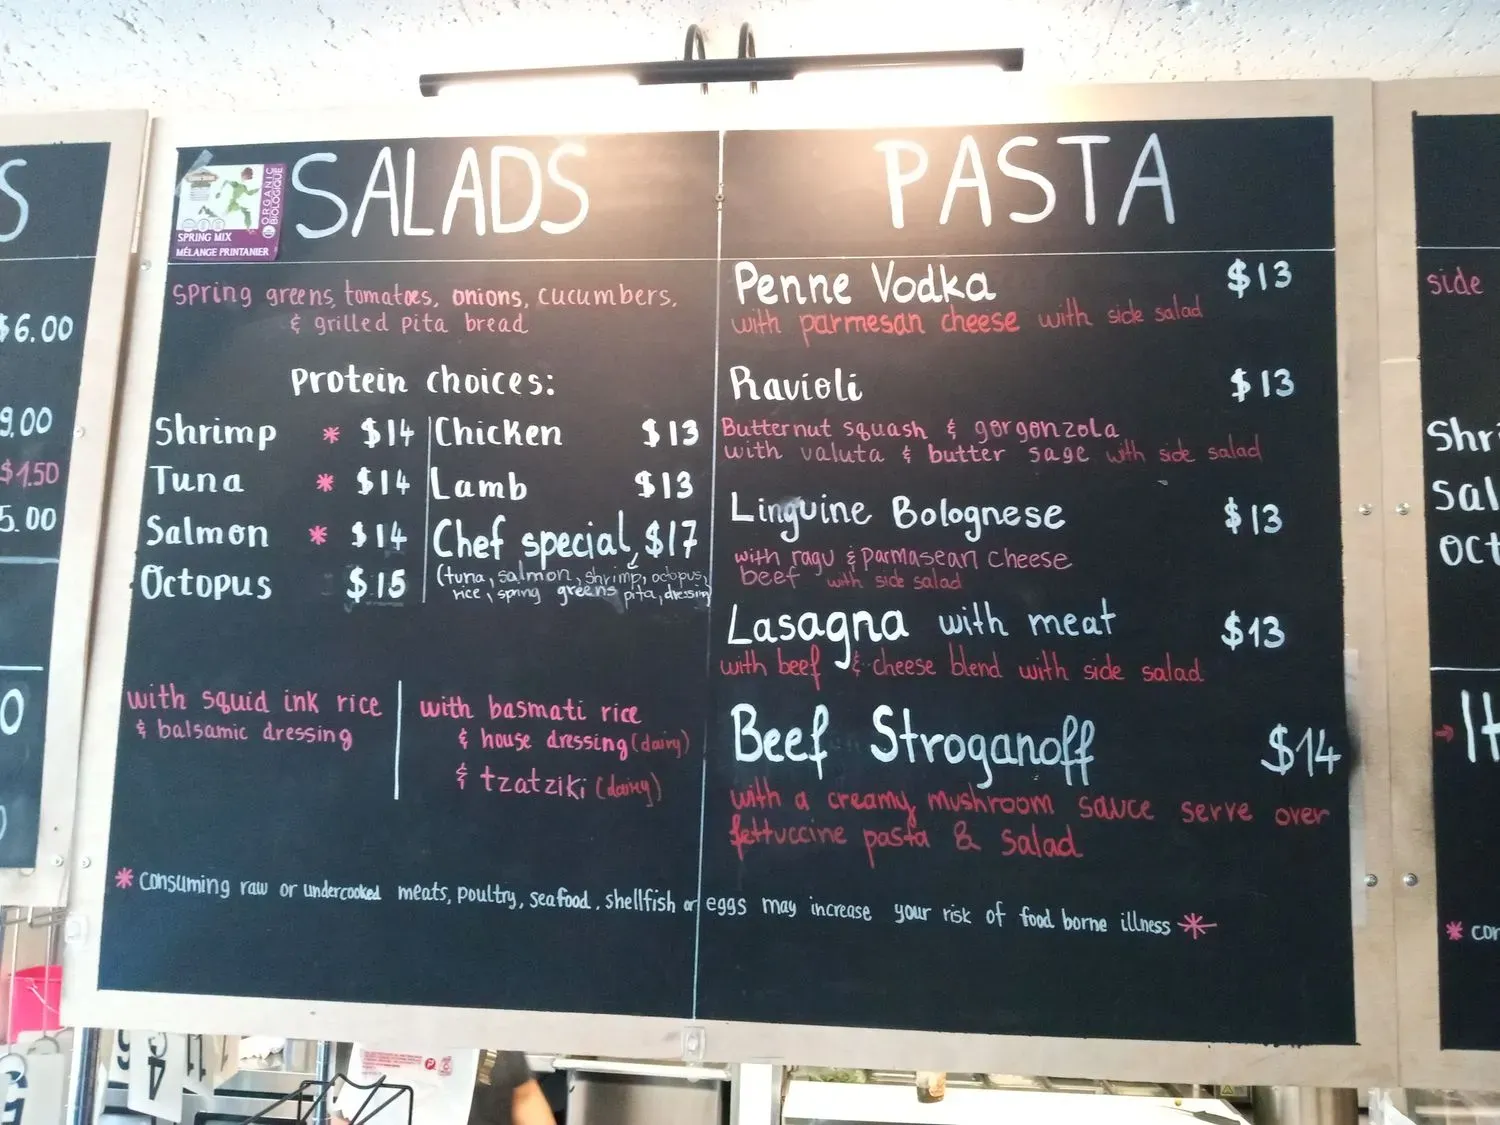 S
$6.00
9.00
$1.50
5.00
0
ORGANIC
BIOLOGIQUE
SPRING MIX
MÉLANGE PRINTANIER
SALADS
spring greens, tomatoes, onions, cucumbers,
& grilled pita bread
Protein choices:
Shrimp * $14
Tuna * $14
Salmon * $14
Octopus $15
Chicken $13
Lamb $13
Chef special, $17
(tuna, salmon, shrimp, octopus,
rice, spring greens pita, dressing
with squid ink rice
& balsamic dressing
with basmati rice
& house dressing (dairy)
& tzatziki (dairy)
PASTA
Penne Vodka $13
with parmesan cheese with side salad
Ravioli $13
Butternut squash & gorgonzola
with valuta & butter sage with side salad
Linguine Bolognese $13
with ragu & parmasean cheese
beef with side salad
Lasagna with meat $13
with beef & cheese blend with side salad
Beef Stroganoff $14
with a creamy mushroom sauce serve over
fettuccine pasta & salad
* consuming raw or undercooked meats, poultry, seafood, shellfish or eggs may increase your risk of food borne illness *
side
Shri
Sal
Oct
It
* con
4
11